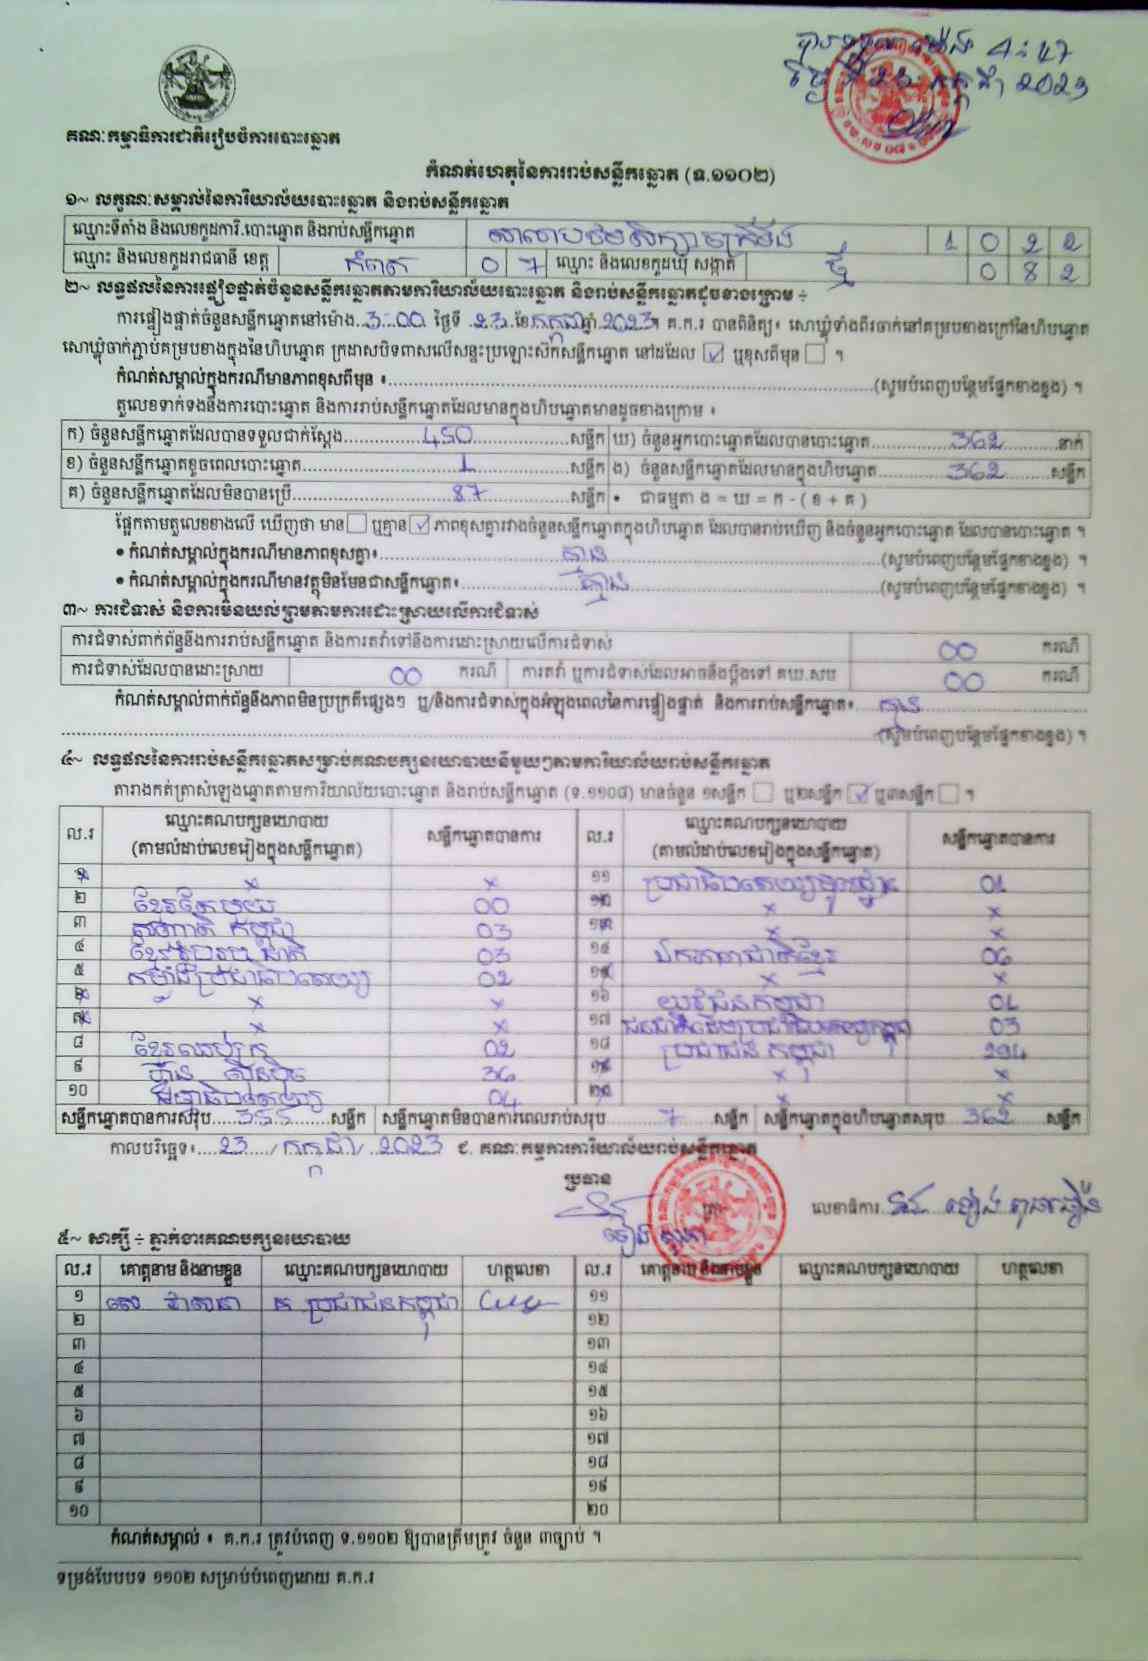 ម៉ោង 4:47
ថ្ងៃទី 23 កក្កដា 2023
គណៈកម្មាធិការជាតិរៀបចំការបោះឆ្នោត
កំណត់ហេតុនៃការរាប់សន្លឹកឆ្នោត (ទ.១១០២)
១~ លក្ខណៈសម្គាល់នៃការិយាល័យបោះឆ្នោត និងរាប់សន្លឹកឆ្នោត
ឈ្មោះទីតាំង និងលេខកូដការិ.បោះឆ្នោត និងរាប់សន្លឹកឆ្នោត សាលាបឋមសិក្សា 1 0 2 2
ឈ្មោះ និងលេខកូដរាជធានី ខេត្ត កំពត 0 7 ឈ្មោះ និងលេខកូដឃុំ សង្កាត់ 0 8 2
២~ លទ្ធផលនៃការផ្ទៀងផ្ទាត់ចំនួនសន្លឹកឆ្នោតតាមការិយាល័យបោះឆ្នោត និងរាប់សន្លឹកឆ្នោតដូចខាងក្រោម ÷
ការផ្ទៀងផ្ទាត់ចំនួនសន្លឹកឆ្នោតនៅម៉ោង 3:00 ថ្ងៃទី 23 ខែ កក្កដា ឆ្នាំ 2023 ។ គ.ក.រ បានពិនិត្យ៖ សោឃ្លុំទាំងពីរចាក់នៅគម្របខាងក្រៅនៃហិបឆ្នោត
សោឃ្លុំចាក់ភ្ជាប់គម្របខាងក្នុងនៃហិបឆ្នោត ក្រដាសបិទពាសលើសន្ទះប្រឡោះស៊កសន្លឹកឆ្នោត នៅដដែល ☑ ឬខុសពីមុន ☐ ។
កំណត់សម្គាល់ក្នុងករណីមានភាពខុសពីមុន ៖ (សូមបំពេញបន្ថែមផ្នែកខាងខ្នង) ។
តួលេខទាក់ទងនឹងការបោះឆ្នោត និងការរាប់សន្លឹកឆ្នោតដែលមានក្នុងហិបឆ្នោតមានដូចខាងក្រោម ៖
ក) ចំនួនសន្លឹកឆ្នោតដែលបានទទួលជាក់ស្តែង 450 សន្លឹក ឃ) ចំនួនអ្នកបោះឆ្នោតដែលបានបោះឆ្នោត 362 នាក់
ខ) ចំនួនសន្លឹកឆ្នោតខូចពេលបោះឆ្នោត 1 សន្លឹក ង) ចំនួនសន្លឹកឆ្នោតដែលមានក្នុងហិបឆ្នោត 362 សន្លឹក
គ) ចំនួនសន្លឹកឆ្នោតដែលមិនបានប្រើ 87 សន្លឹក • ជាធម្មតា ង = ឃ = ក - ( ខ + គ )
ផ្អែកតាមតួលេខខាងលើ ឃើញថា មាន ☐ ឬគ្មាន ☑ ភាពខុសគ្នារវាងចំនួនសន្លឹកឆ្នោតក្នុងហិបឆ្នោត ដែលបានរាប់ឃើញ និងចំនួនអ្នកបោះឆ្នោត ដែលបានបោះឆ្នោត ។
• កំណត់សម្គាល់ក្នុងករណីមានភាពខុសគ្នា៖ គ្មាន (សូមបំពេញបន្ថែមផ្នែកខាងខ្នង) ។
• កំណត់សម្គាល់ក្នុងករណីមានវត្ថុមិនមែនជាសន្លឹកឆ្នោត៖ គ្មាន (សូមបំពេញបន្ថែមផ្នែកខាងខ្នង) ។
៣~ ការជំទាស់ និងការមិនយល់ព្រមតាមការដោះស្រាយលើការជំទាស់
ការជំទាស់ពាក់ព័ន្ធនឹងការរាប់សន្លឹកឆ្នោត និងការតវ៉ាទៅនឹងការដោះស្រាយលើការជំទាស់ 00 ករណី
ការជំទាស់ដែលបានដោះស្រាយ 00 ករណី ការតវ៉ា ឬការជំទាស់ដែលអាចនឹងប្តឹងទៅ គឃ.សប 00 ករណី
កំណត់សម្គាល់ពាក់ព័ន្ធនឹងភាពមិនប្រក្រតីផ្សេងៗ ឬ/និងការជំទាស់ក្នុងអំឡុងពេលនៃការផ្ទៀងផ្ទាត់ និងការរាប់សន្លឹកឆ្នោត៖ គ្មាន
(សូមបំពេញបន្ថែមផ្នែកខាងខ្នង) ។
៤~ លទ្ធផលនៃការរាប់សន្លឹកឆ្នោតសម្រាប់គណបក្សនយោបាយនីមួយៗតាមការិយាល័យរាប់សន្លឹកឆ្នោត
តារាងកត់ត្រាសំឡេងឆ្នោតតាមការិយាល័យបោះឆ្នោត និងរាប់សន្លឹកឆ្នោត (ទ.១១០៨) មានចំនួន ១សន្លឹក ☐ ឬ២សន្លឹក ☑ ឬ៣សន្លឹក ☐ ។
ល.រ ឈ្មោះគណបក្សនយោបាយ (តាមលំដាប់លេខរៀងក្នុងសន្លឹកឆ្នោត) សន្លឹកឆ្នោតបានការ ល.រ ឈ្មោះគណបក្សនយោបាយ (តាមលំដាប់លេខរៀងក្នុងសន្លឹកឆ្នោត) សន្លឹកឆ្នោតបានការ
១ x x ១១ ប្រជាធិបតេយ្យមូលដ្ឋាន 01
២ ខ្មែរតែមួយ 00 ១២ x x
៣ សញ្ជាតិកម្ពុជា 03 ១៣ x x
៤ ខ្មែររួបរួមជាតិ 03 ១៤ ឯកភាពជាតិខ្មែរ 06
៥ កម្លាំងប្រជាធិបតេយ្យ 02 ១៥ x x
៦ x x ១៦ យុវជនកម្ពុជា 01
៧ x x ១៧ 03
៨ ខ្មែរឈប់ក្រ 02 ១៨ ប្រជាជនកម្ពុជា 294
៩ ហ្វ៊ុនស៊ិនប៉ិច 36 ១៩ x x
១០ ធម្មាធិបតេយ្យ 04 ២០ x x
សន្លឹកឆ្នោតបានការសរុប 355 សន្លឹក សន្លឹកឆ្នោតមិនបានការពេលរាប់សរុប 7 សន្លឹក សន្លឹកឆ្នោតក្នុងហិបឆ្នោតសរុប 362 សន្លឹក
កាលបរិច្ឆេទ៖ 23 / កក្កដា / 2023 ជ. គណៈកម្មការការិយាល័យរាប់សន្លឹកឆ្នោត
ប្រធាន
លេខាធិការ
៥~ សាក្សី ÷ ភ្នាក់ងារគណបក្សនយោបាយ
ល.រ គោត្តនាម និងនាមខ្លួន ឈ្មោះគណបក្សនយោបាយ ហត្ថលេខា ល.រ គោត្តនាម និងនាមខ្លួន ឈ្មោះគណបក្សនយោបាយ ហត្ថលេខា
១ គ ប្រជាជនកម្ពុជា ១១
២ ១២
៣ ១៣
៤ ១៤
៥ ១៥
៦ ១៦
៧ ១៧
៨ ១៨
៩ ១៩
១០ ២០
កំណត់សម្គាល់ ៖ គ.ក.រ ត្រូវបំពេញ ទ.១១០២ ឱ្យបានត្រឹមត្រូវ ចំនួន ៣ច្បាប់ ។
ទម្រង់បែបបទ ១១០២ សម្រាប់បំពេញដោយ គ.ក.រ